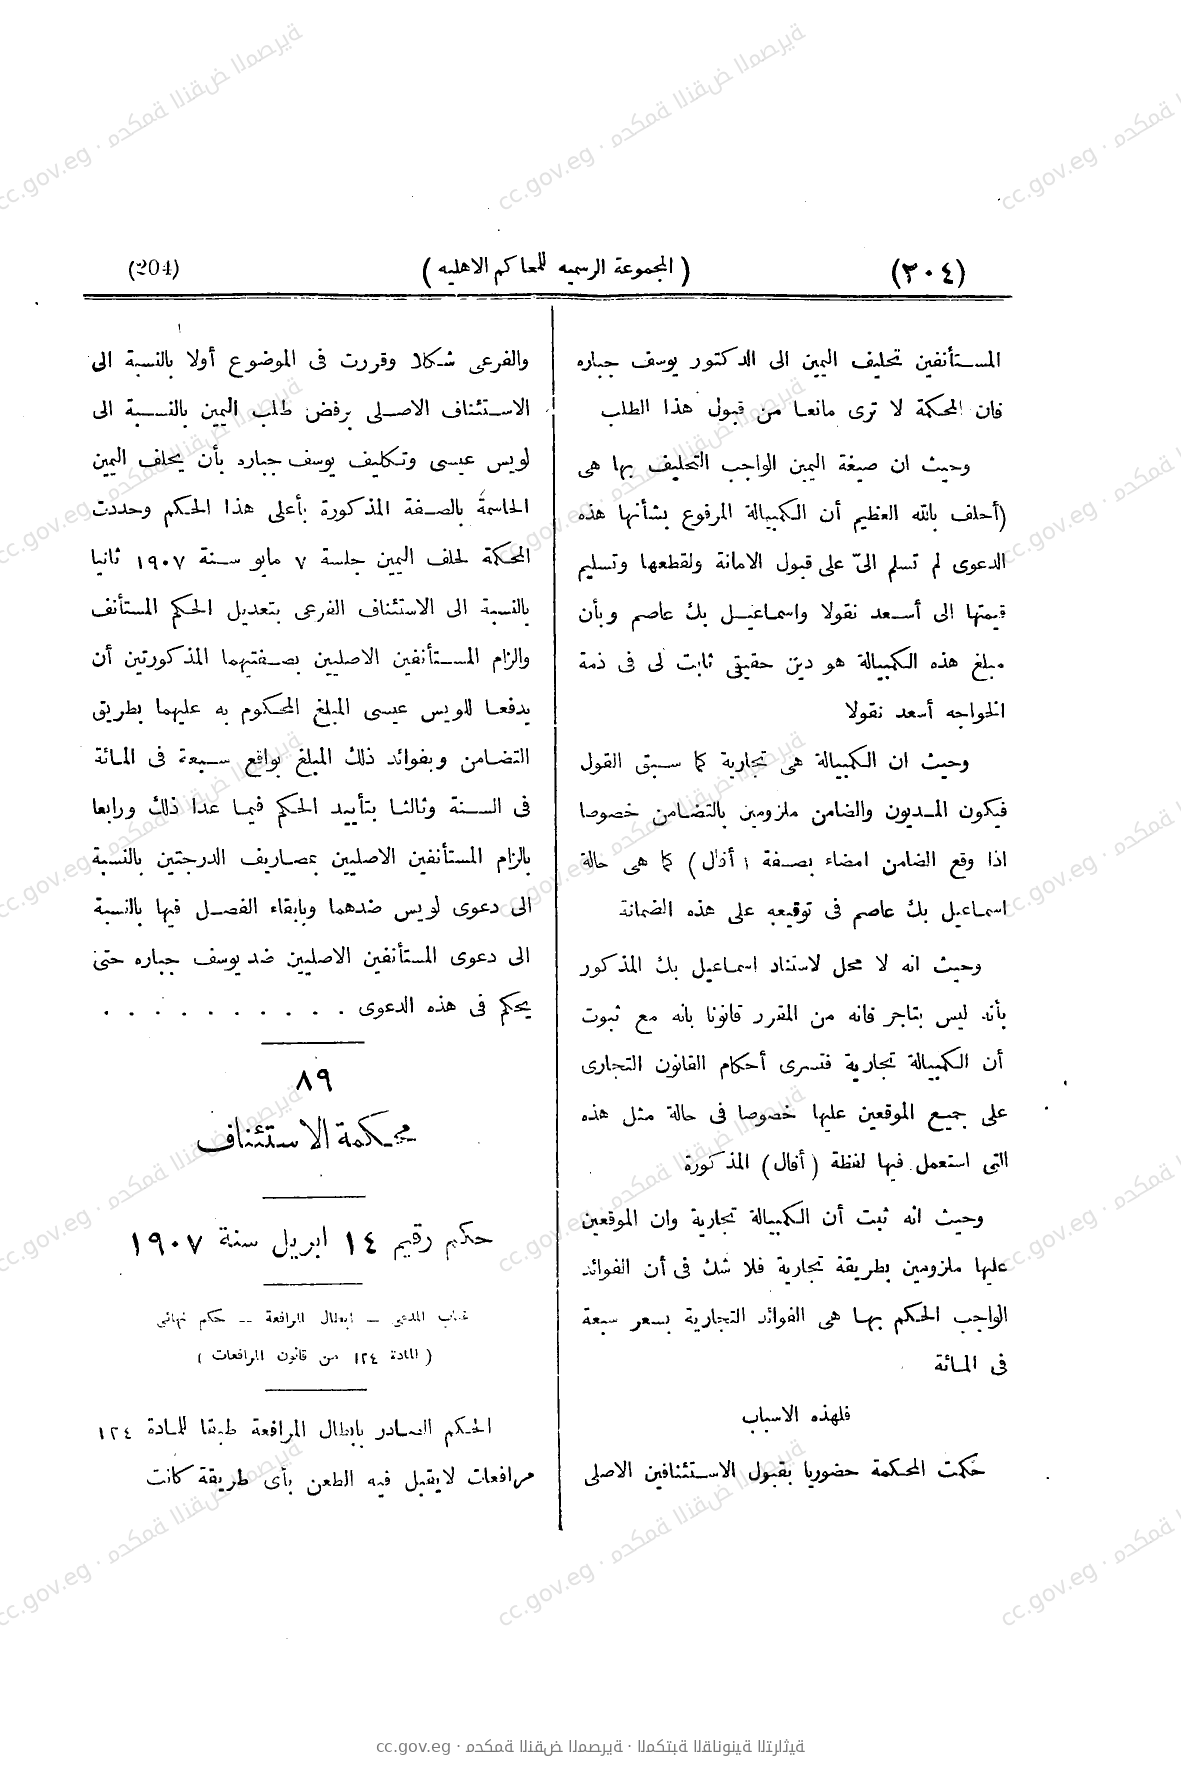 (٢٠٤)
( المجموعة الرسمية للمحاكم الاهلية )
(204)
المستأنفين تحليف اليمين الى الدكتور يوسف جباره
فان المحكمة لا ترى مانعا من قبول هذا الطلب
وحيث ان صيغة اليمين الواجب التحليف بها هى
(أحلف بالله العظيم أن الكمبيالة المرفوع بشأنها هذه
الدعوى لم تسلم الىّ على قبول الامانة ولقطعها وتسليم
قيمتها الى أسعد نقولا واسماعيل بك عاصم وبأن
مبلغ هذه الكمبيالة هو دين حقيقى ثابت لى فى ذمة
الخواجه أسعد نقولا
وحيث ان الكمبيالة هى تجارية كما سبق القول
فيكون المديون والضامن ملزومين بالتضامن خصوصا
اذا وقع الضامن امضاء بصفة ( أفال ) كما هى حالة
اسماعيل بك عاصم فى توقيعه على هذه الضمانة
وحيث انه لا محل لاستناد اسماعيل بك المذكور
بأنه ليس بتاجر فانه من المقرر قانونا بانه مع ثبوت
أن الكمبيالة تجارية فتسرى أحكام القانون التجارى
على جميع الموقعين عليها خصوصا فى حالة مثل هذه
التى استعمل فيها لفظة ( أفال ) المذكورة
وحيث انه ثبت أن الكمبيالة تجارية وان الموقعين
عليها ملزومين بطريقة تجارية فلا شك فى أن الفوائد
الواجب الحكم بها هى الفوائد التجارية بسعر سبعة
فى المائة
فلهذه الاسباب
حكمت المحكمة حضوريا بقبول الاستئنافين الاصلى
والفرعى شكلا وقررت فى الموضوع أولا بالنسبة الى
الاستئناف الاصلى برفض طلب اليمين بالنسبة الى
لويس عيسى وتكليف يوسف جباره بأن يحلف اليمين
الحاسمة بالصفة المذكورة بأعلى هذا الحكم وحددت
المحكمة لحلف اليمين جلسة ٧ مايو سنة ١٩٠٧ ثانيا
بالنسبة الى الاستئناف الفرعى بتعديل الحكم المستأنف
والزام المستأنفين الاصليين بصفتيهما المذكورتين أن
يدفعا للويس عيسى المبلغ المحكوم به عليهما بطريق
التضامن وبفوائد ذلك المبلغ بواقع سبعة فى المائة
فى السنة وثالثا بتأييد الحكم فيما عدا ذلك ورابعا
بالزام المستأنفين الاصليين بمصاريف الدرجتين بالنسبة
الى دعوى لويس ضدهما وبابقاء الفصل فيها بالنسبة
الى دعوى المستأنفين الاصليين ضد يوسف جباره حتى
يحكم فى هذه الدعوى . . . . . . . . . .
٨٩
محكمة الاستئناف
حكم رقيم ١٤ ابريل سنة ١٩٠٧
غياب المدعى — ابطال المرافعة — حكم نهائى
( المادة ١٢٤ من قانون المرافعات )
الحكم الصادر بابطال المرافعة طبقا للمادة ١٢٤
مرافعات لا يقبل فيه الطعن بأى طريقة كانت
cc.gov.eg · محكمة النقض المصرية · المكتبة القانونية التراثية